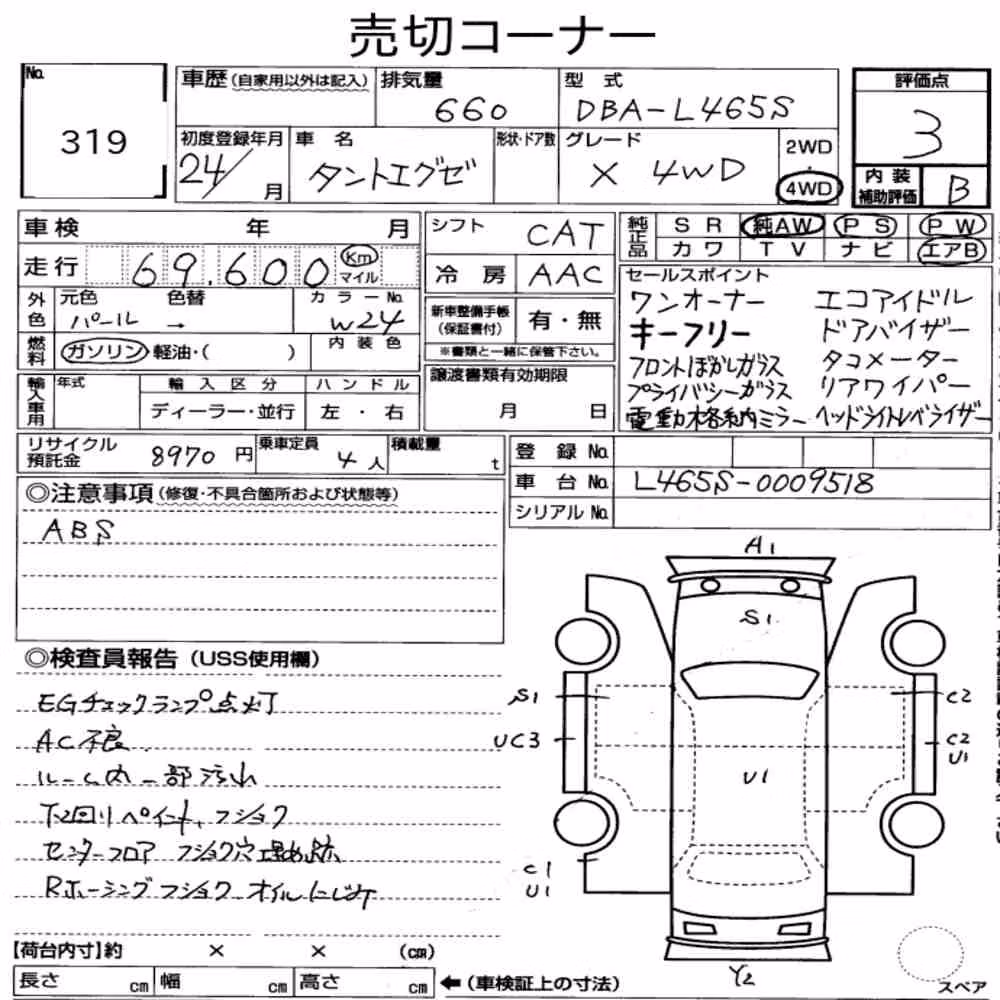 売切コーナー
No. 319
車歴(自家用以外は記入)
排気量 660
型 式 DBA-L465S
評価点 3
初度登録年月 24/ 月
車 名 タントエグゼ
形状・ドア数
グレード X 4WD
2WD
4WD
内 装 補助評価 B
車検 年 月
走行 69,600 Km マイル
シフト CAT
冷 房 AAC
純正品 SR 純AW PS PW
カワ TV ナビ エアB
外色 元色 パール 色替 → カラーNo. W24
燃料 ガソリン・軽油・( ) 内 装 色
新車整備手帳(保証書付) 有・無
※書類と一緒に保管下さい。
セールスポイント
ワンオーナー エコアイドル
キーフリー ドアバイザー
フロントぼかしガラス タコメーター
プライバシーガラス リアワイパー
電動格納ミラー ヘッドライトレベライザー
輸入車用 年式 輸 入 区 分 ハ ン ド ル
ディーラー・並行 左 ・ 右
譲渡書類有効期限
月 日
リサイクル預託金 8970 円 乗車定員 4 人 積載量 t
登 録 No.
車 台 No. L465S-0009518
シリアル No.
◎注意事項(修復・不具合箇所および状態等)
ABS
◎検査員報告(USS使用欄)
EGチェックランプ点灯
AC不良
ルーム内一部汚れ
下回りペイント、フショク
センターフロア フショク穴埋め跡
Rホーシングフショク オイルにじみ
【荷台内寸】約 × × (cm)
長さ cm 幅 cm 高さ cm ←(車検証上の寸法)
A1
S1
S1
C2
UC3
C2
U1
U1
C1
U1
Y2
スペア